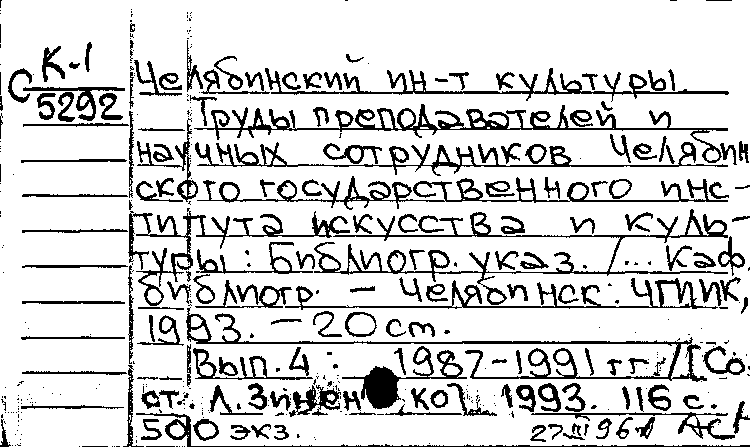 К-1
С 5292
Челябинский ин-т культуры.
Труды преподавателей и
научных сотрудников Челябин
ского государственного инс-
титута искусства и куль-
туры: Библиогр. указ. /... Каф.
библиогр. — Челябинск: ЧГИИК,
1993. — 20 см.
Вып. 4: 1987-1991 гг /[Со
ст. Л. Зинен ко] 1993. 116 с.
500 экз. 27 III 96